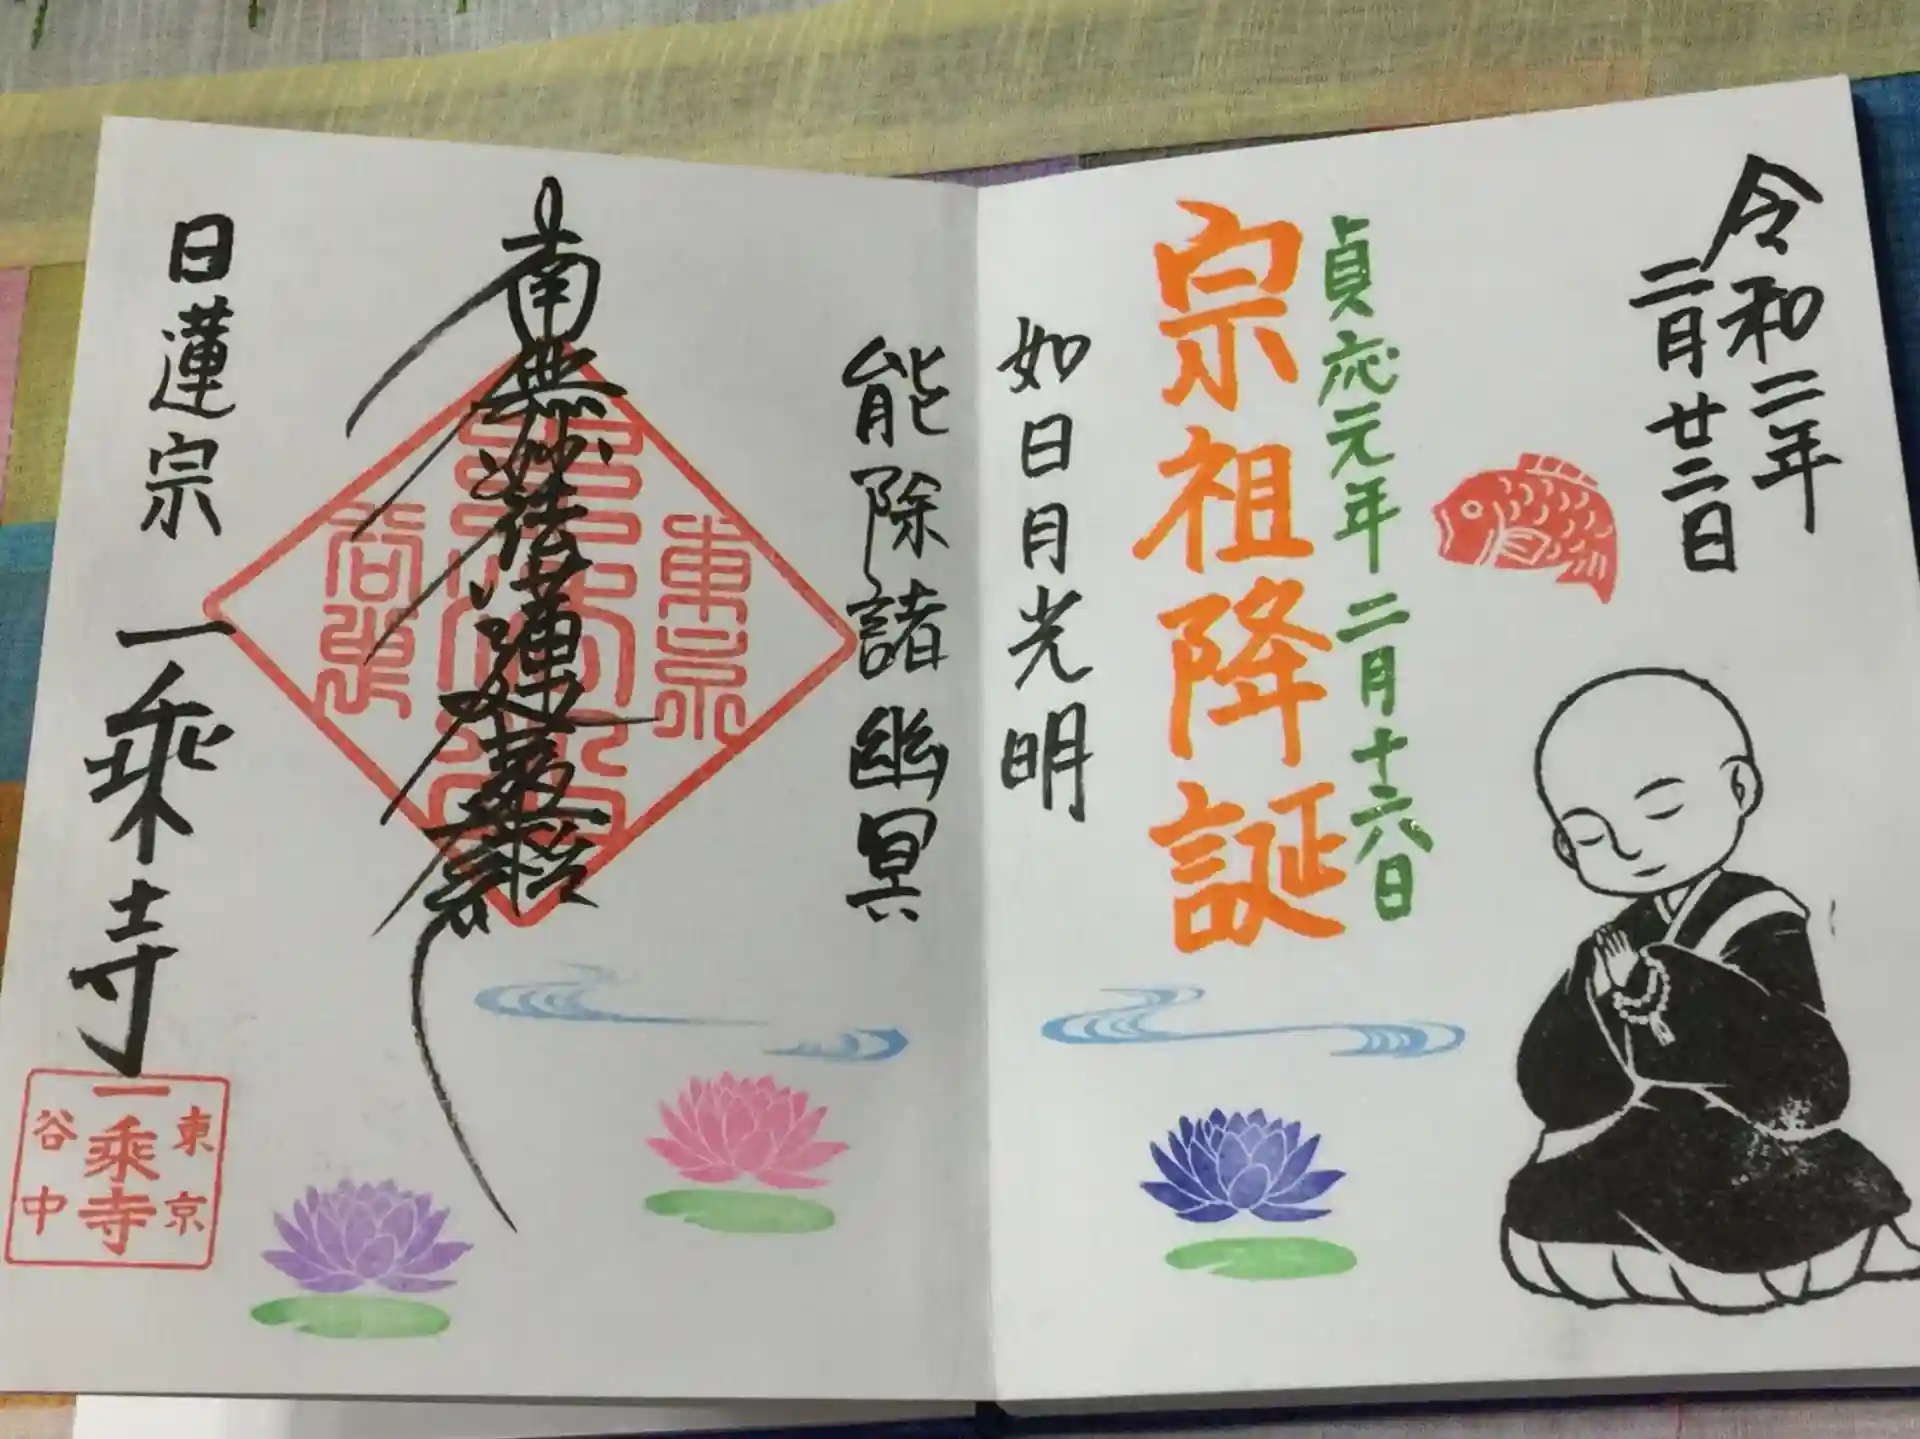 令和二年
二月廿二日
貞応元年二月十六日
宗祖降誕
如日月光明
能除諸幽冥
南無妙法蓮華経
日蓮宗
一乗寺
東京
一乗寺
谷中
東京
谷中